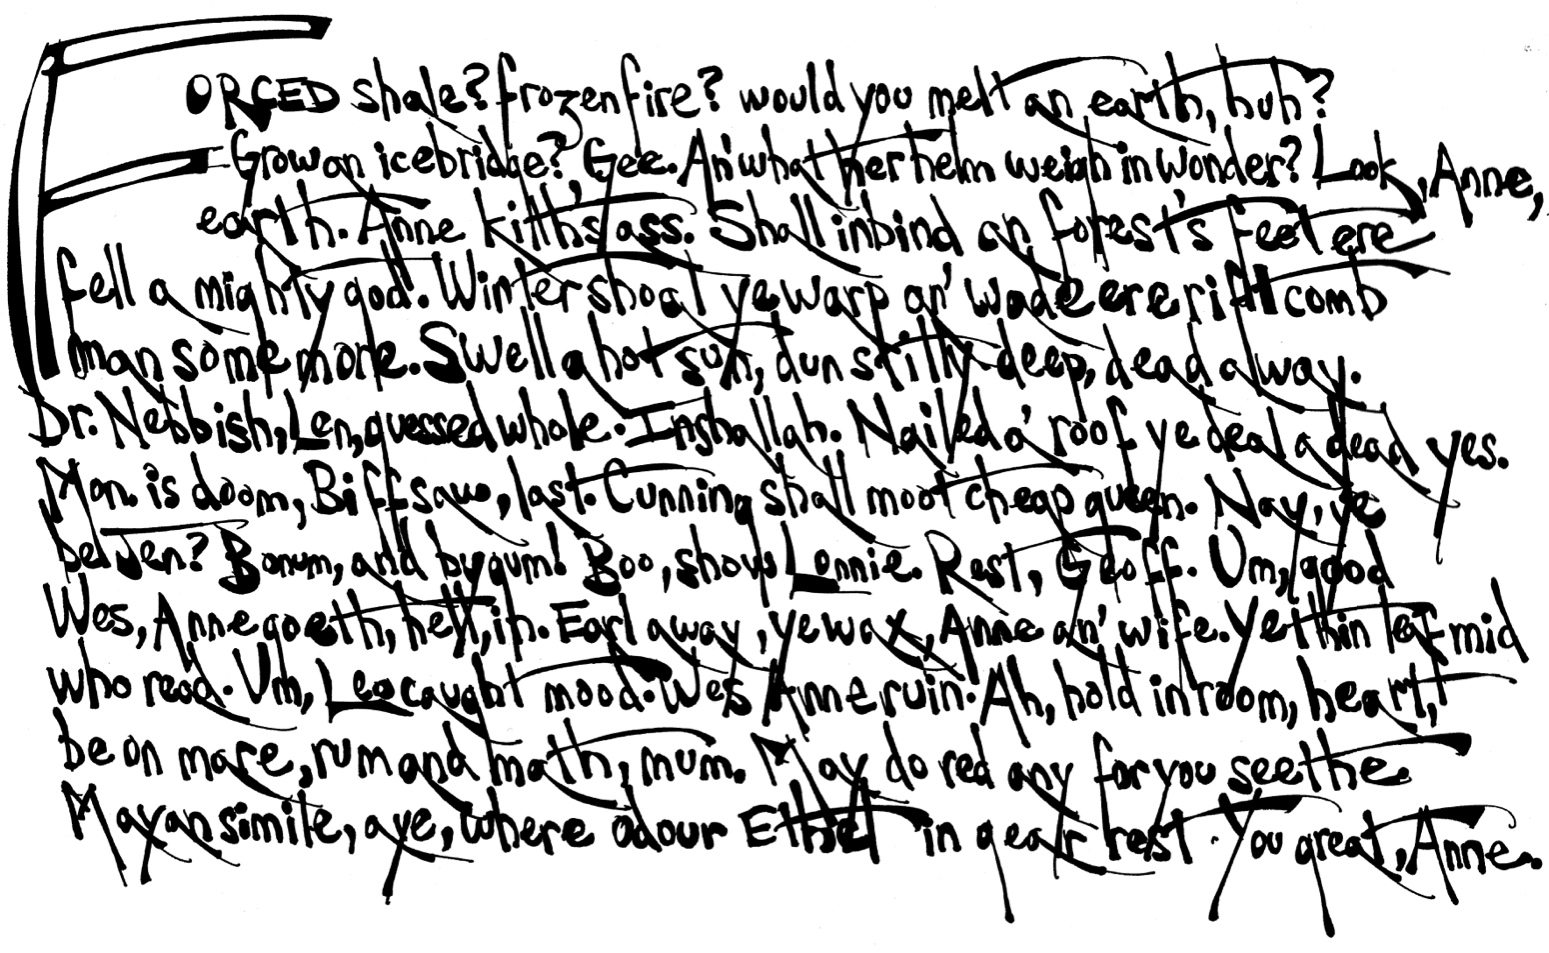 FORGED shale? frozen fire? would you melt an earth, huh?
Grow an icebridge? Gee. An' what her helm weigh in wonder? Look, Anne,
earth. Anne kilth's ass. Shall inbind an forest's feel ere
fell a mighty god. Winter shoal ye warp an' wade ere rift comb
man some more. Swell a hot sun, dun stilly deep, dead away.
Dr. Nebbish, Len, guessed whole. Inshallah. Nailed o' roof ye deal a dead yes.
Man is doom, Biff saw, last. Cunning shall moot cheap queen. Nay, ye
Bonum, and by gum! Boo, show Lonnie. Rest, Geoff. Um, good
Wes, Anne goeth, hell, in. Earl away, ye wax, Anne an' wife. Ye thin leaf mid
who read. Um, Leo caught mood. Wes Anne ruin. Ah, hold in room, heart,
be on mare, rum and math, mum. May do red any for you seethe.
Mayan simile, aye, where odour Ethel in gear rest. You great, Anne.